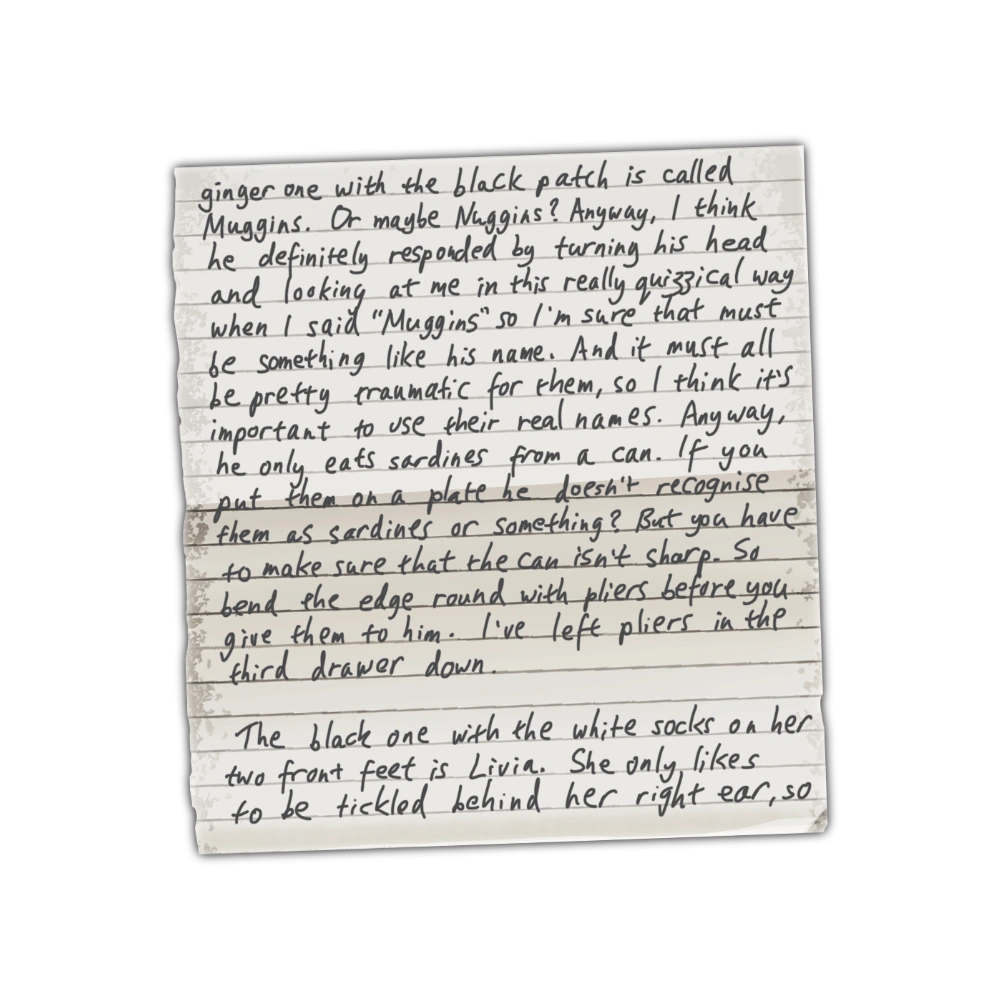 ginger one with the black patch is called
Muggins. Or maybe Nuggins? Anyway, I think
he definitely responded by turning his head
and looking at me in this really quizzical way
when I said "Muggins" so I'm sure that must
be something like his name. And it must all
be pretty traumatic for them, so I think it's
important to use their real names. Anyway,
he only eats sardines from a can. If you
put them on a plate he doesn't recognise
them as sardines or something? But you have
to make sure that the can isn't sharp. So
bend the edge round with pliers before you
give them to him. I've left pliers in the
third drawer down.
The black one with the white socks on her
two front feet is Livia. She only likes
to be tickled behind her right ear, so